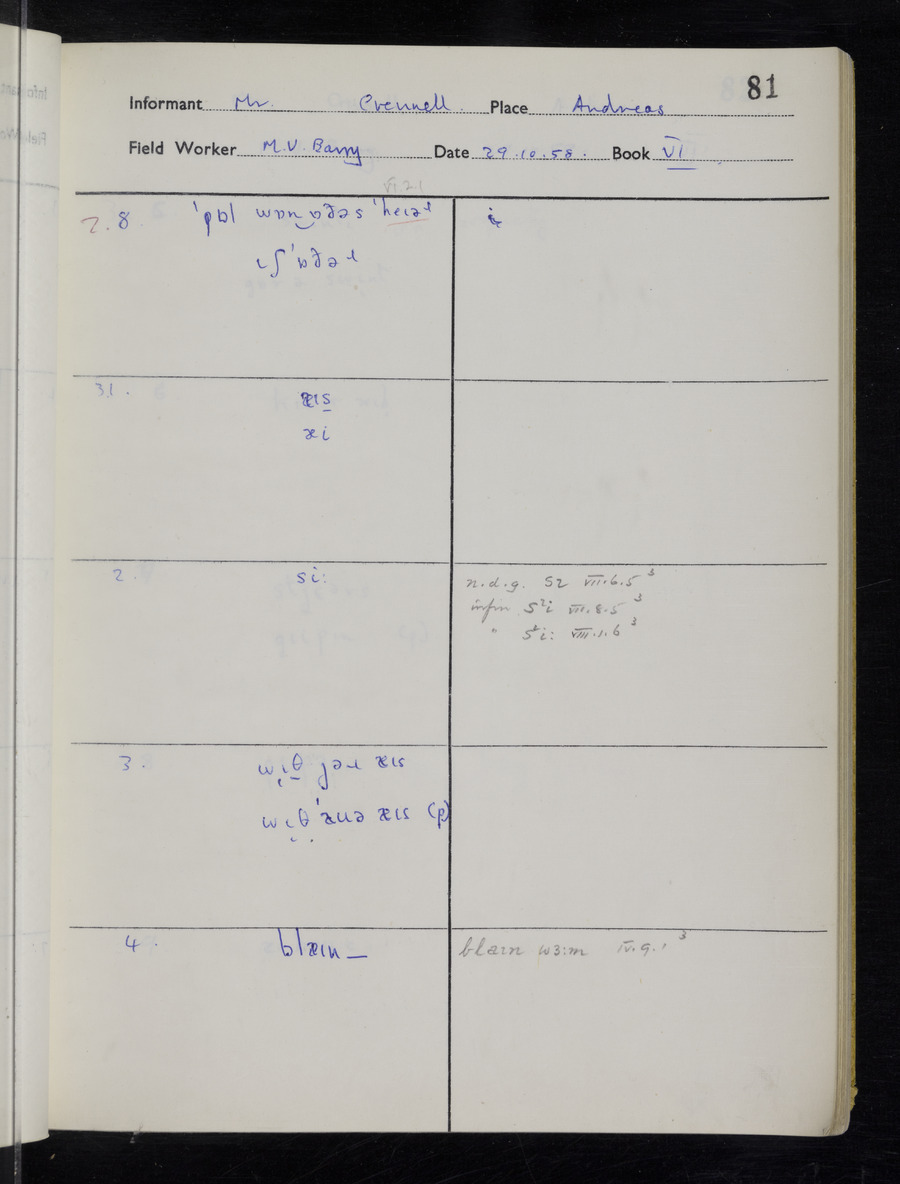 81
Informant Mr. Crennell. Place Andreas
Field Worker M.V. Barry Date 29.10.58. Book VI
VI.2.1
2.8. ˈpʊl wɒn‿ɒðəs ˈheɪəɹ
ɪʃ ˈɒðəɹ
31. æɪs
æi
2. si:
n.d.g. sɪ VII.6.5³
infin sᶦi VII.8.5³
" sᶦi: VIII.1.6³
3. wɪθ jəɹ æɪs
wɪθ ˈænə æɪs (p)
4. blæɪn —
blaɪn wɜ:m IV.9.1³